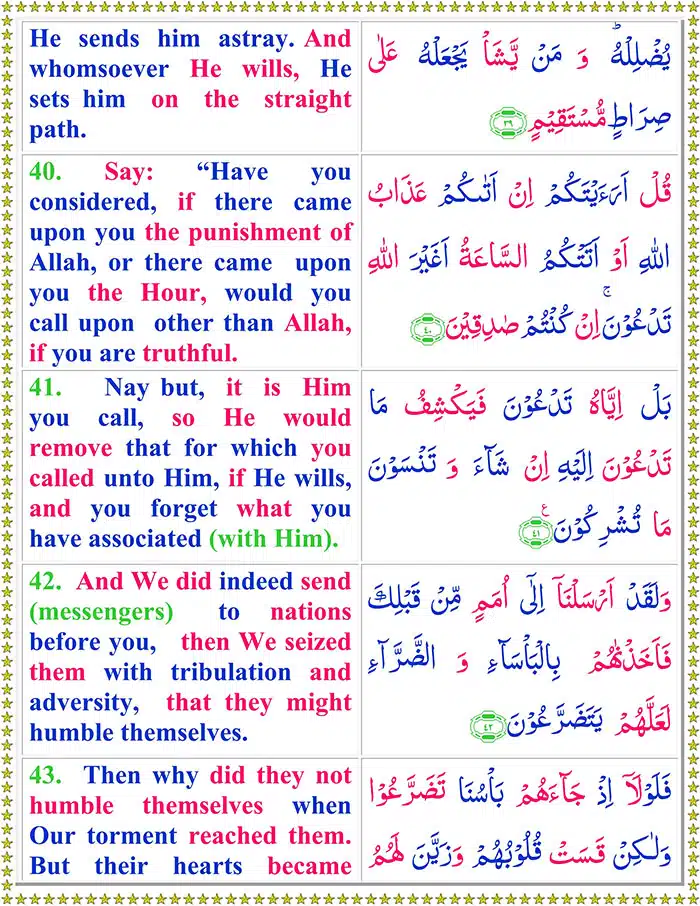 He sends him astray. And
whomsoever He wills, He
sets him on the straight
path.
يُضْلِلْهُ ؕ وَ مَنْ يَّشَاْ يَجْعَلْهُ عَلٰى
صِرَاطٍ مُّسْتَقِيْمٍ ﴿۳۹﴾
40. Say: “Have you
considered, if there came
upon you the punishment of
Allah, or there came upon
you the Hour, would you
call upon other than Allah,
if you are truthful.
قُلْ اَرَءَيْتَكُمْ اِنْ اَتٰٮكُمْ عَذَابُ
اللهِ اَوْ اَتَتْكُمُ السَّاعَةُ اَغَيْرَ اللهِ
تَدْعُوْنَ ۚ اِنْ كُنْتُمْ صٰدِقِيْنَ ﴿۴۰﴾
41. Nay but, it is Him
you call, so He would
remove that for which you
called unto Him, if He wills,
and you forget what you
have associated (with Him).
بَلْ اِيَّاهُ تَدْعُوْنَ فَيَكْشِفُ مَا
تَدْعُوْنَ اِلَيْهِ اِنْ شَآءَ وَ تَنْسَوْنَ
مَا تُشْرِكُوْنَ ﴿۴۱﴾ ع
42. And We did indeed send
(messengers) to nations
before you, then We seized
them with tribulation and
adversity, that they might
humble themselves.
وَلَقَدْ اَرْسَلْنَاۤ اِلٰٓى اُمَمٍ مِّنْ قَبْلِكَ
فَاَخَذْنٰهُمْ بِالْبَاْسَآءِ وَ الضَّرَّآءِ
لَعَلَّهُمْ يَتَضَرَّعُوْنَ ﴿۴۲﴾
43. Then why did they not
humble themselves when
Our torment reached them.
But their hearts became
فَلَوْلَاۤ اِذْ جَآءَهُمْ بَاْسُنَا تَضَرَّعُوْا
وَلٰكِنْ قَسَتْ قُلُوْبُهُمْ وَزَيَّنَ لَهُمُ